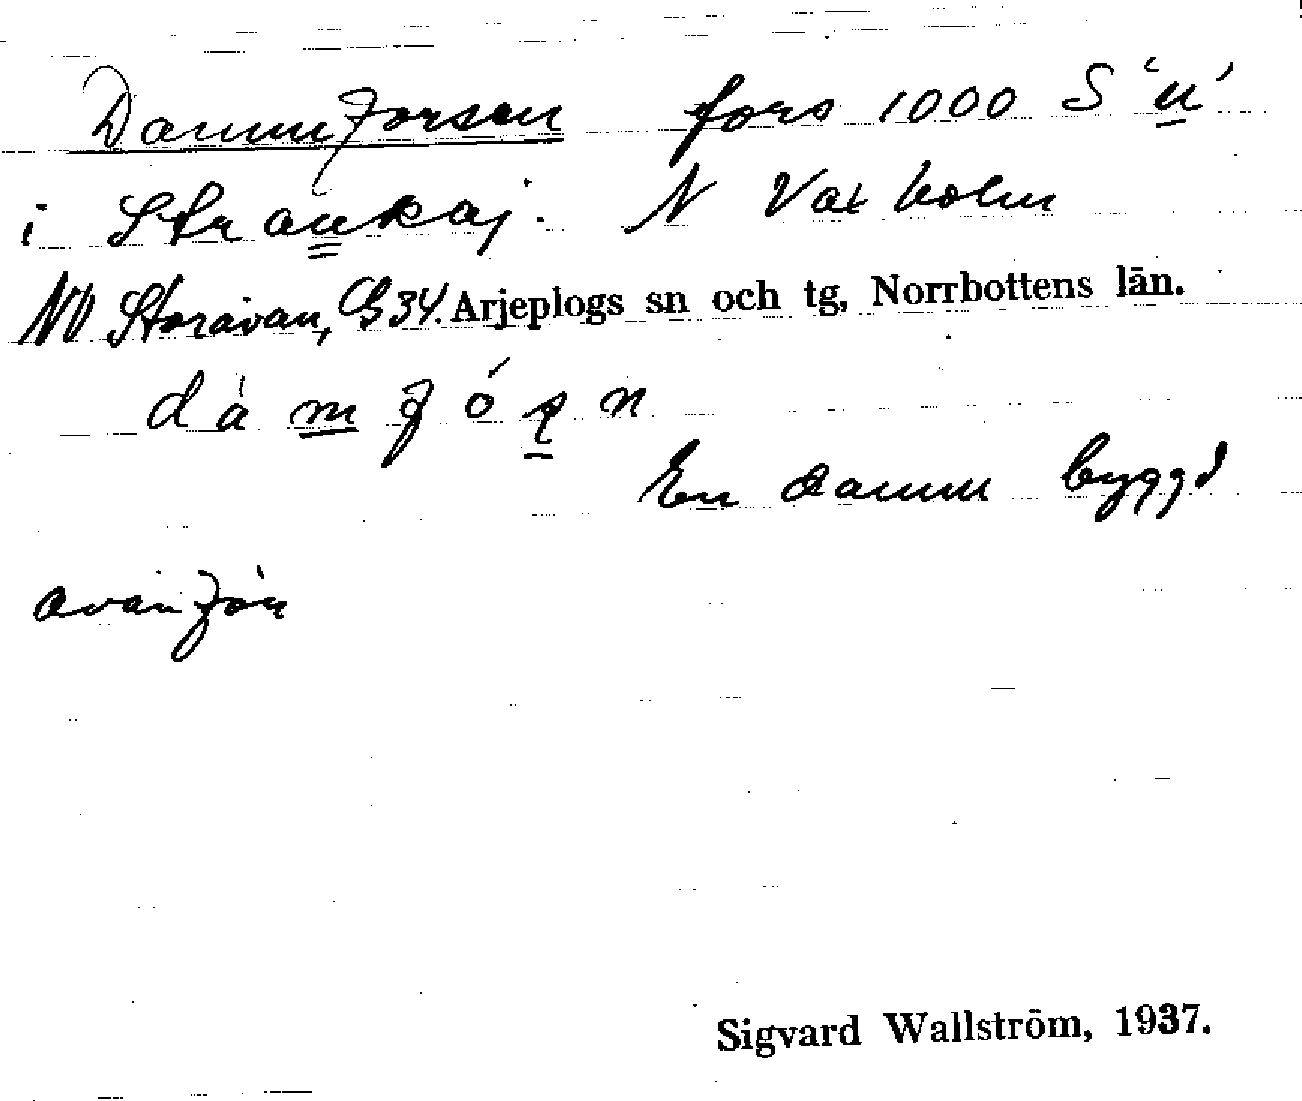 Dammforsen fors 1000 S 'u'
i Straukaj. N Vaxholm
NV Storavan, G34. Arjeplogs sn och tg, Norrbottens län.
dàmfóṣn
En damm byggd
ovanför
Sigvard Wallström, 1937.